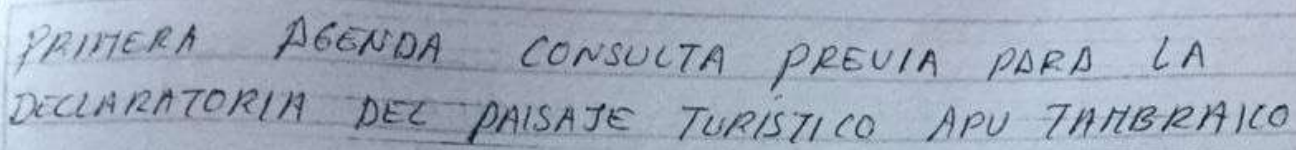 PRIMERA AGENDA CONSULTA PREVIA PARA LA
DECLARATORIA DEL PAISAJE TURÍSTICO APU TAMBRAICO